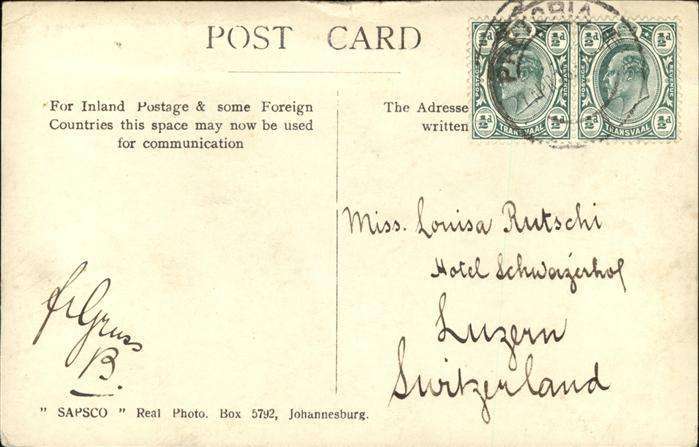 POST CARD
For Inland Postage & some Foreign
Countries this space may now be used
for communication
The Adresse
written
PRETORIA
½d ½d
POSTAGE REVENUE
½d ½d
TRANSVAAL
½d ½d
POSTAGE REVENUE
½d ½d
TRANSVAAL
Miss. Louisa Rutschi
Hotel Schweizerhof
Luzern
Switzerland
frGruss
B.
" SAPSCO " Real Photo. Box 5792, Johannesburg.